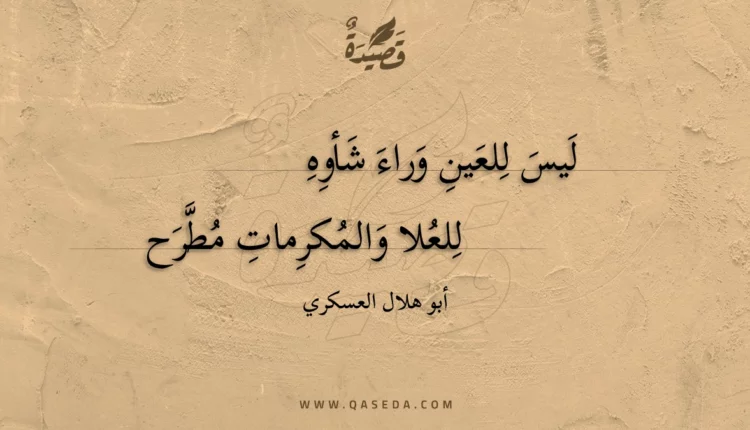 قَصِيْدَةٌ
لَيسَ لِلعَينِ وَراءَ شَأوِهِ
لِلعُلا وَالمُكرِماتِ مُطَّرَح
أبو هلال العسكري
WWW.QASEDA.COM